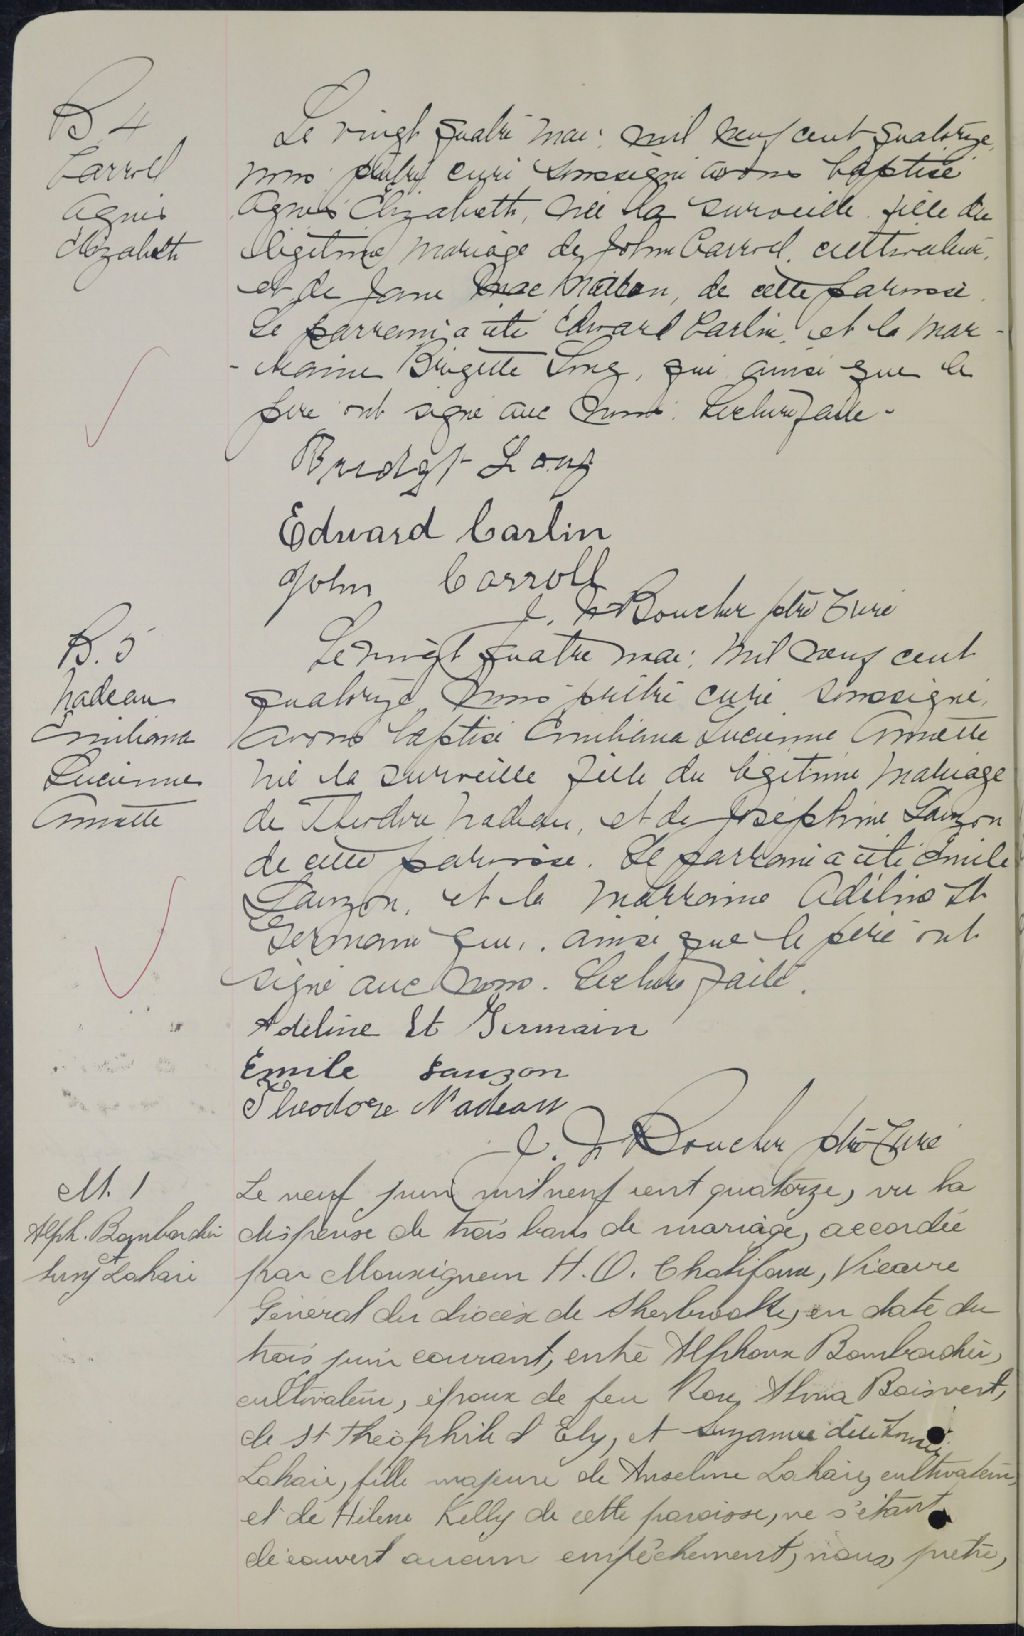 B. 4
Carroll
Agnis
Elizabeth
Le vingt quatre mai mil neuf cent quatorze,
nous prêtre curé soussigné avons baptisé
Agnes Elizabeth, née la surveille fille du
légitime mariage de John Carrol, cultivateur,
et de Jane Mac Mallon, de cette paroisse.
Le parrain a été Edward Carlin, et la mar-
-raine Brigitte Long, qui ainsi que le
père ont signé avec nous. Lecture faite -
Bridget Long
Edward Carlin
John Carroll
J. Boucher ptre Curé
B. 5
Nadeau
Emiliana
Lucienne
Annette
Le vingt quatre mai mil neuf cent
quatorze nous prêtre curé soussigné
avons baptisé Emiliana Lucienne Annette
née la surveille fille du légitime mariage
de Theodore Nadeau, et de Josephine Lauzon
de cette paroisse. Le parrain a été Emile
Lauzon, et la marraine Adélina St
Germain qui, ainsi que le père ont
signé avec nous. Lecture faite.
Adeline St Germain
Emile Lauzon
Theodore Nadeau
J. Boucher ptre Curé
M. 1
Alph. Bombardier
et
Susy Lahaie
Le neuf juin mil neuf cent quatorze, vu la
dispense de trois bans de mariage, accordée
par Monseigneur H. O. Chalifoux, Vicaire
Général du diocèse de Sherbrooke, en date du
trois juin courant, entre Alphonse Bombardier,
cultivateur, époux de feu Rose Alma Boisvert,
de St Théophile d'Ely, et Suzanne dite
Lahaie, fille majeure de Anselme Lahaie, cultivateur,
et de Hélène Kelly de cette paroisse, ne s'étant
découvert aucun empêchement, nous, prêtre,